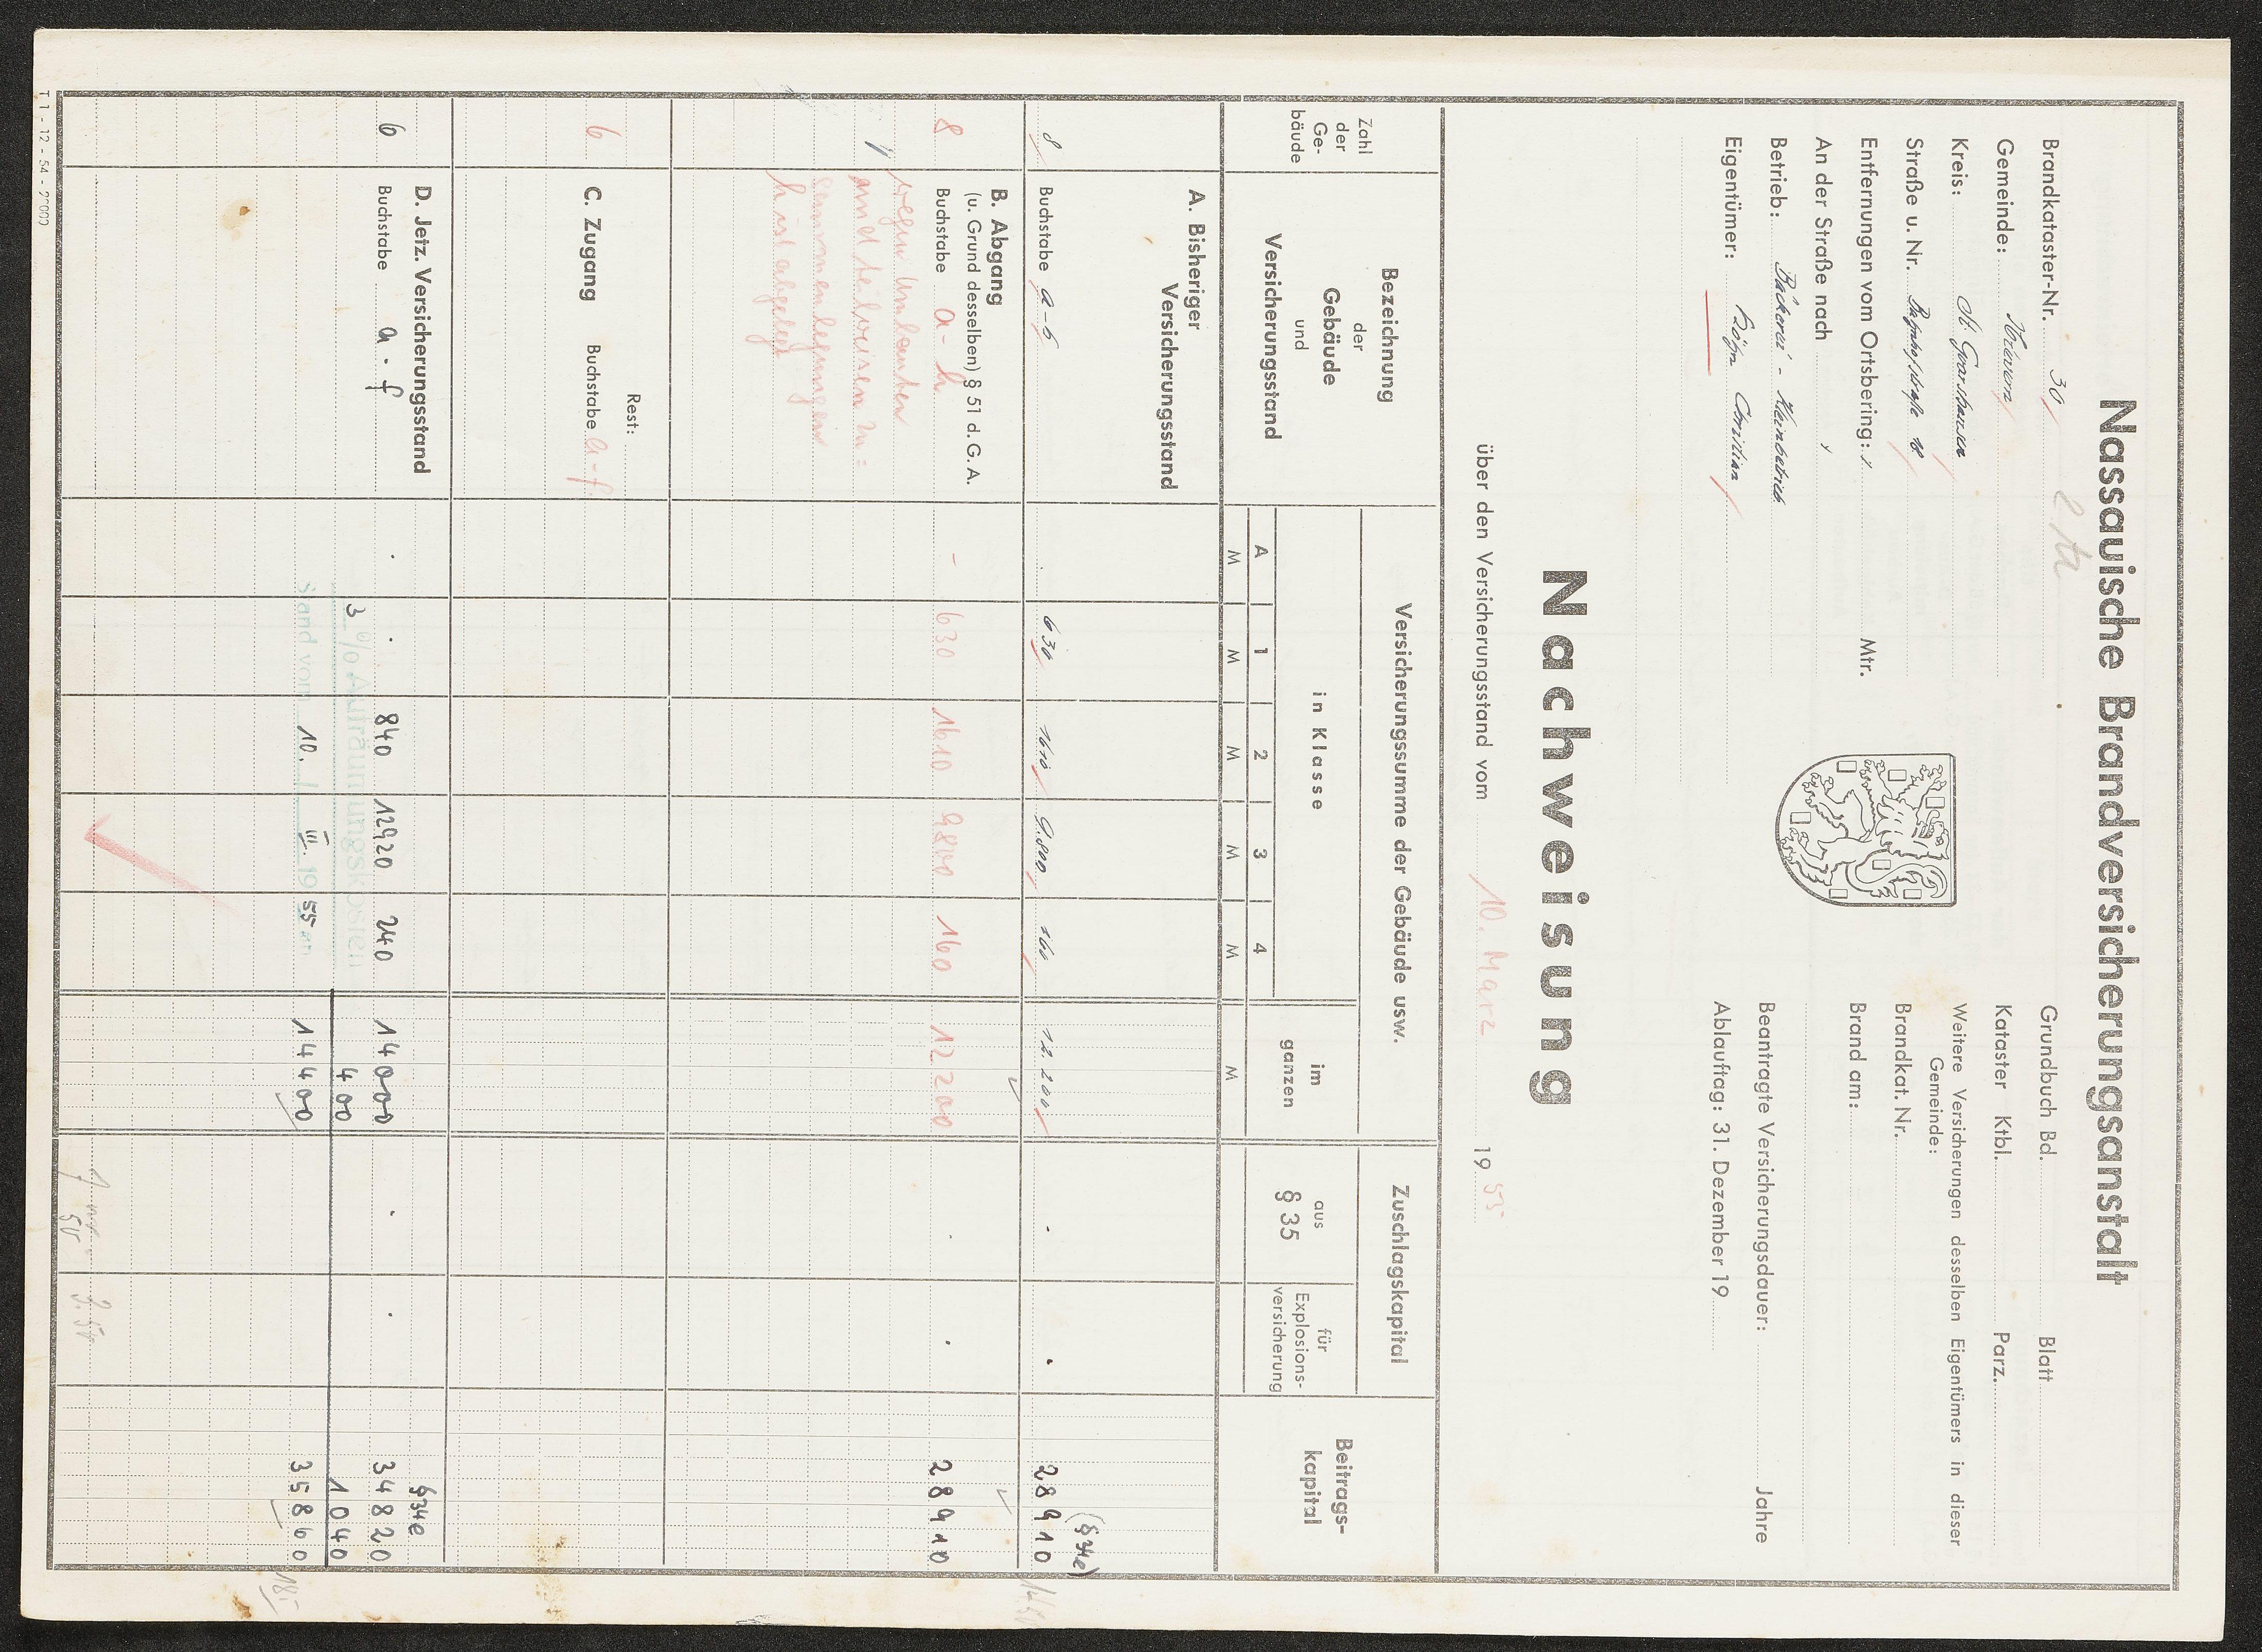 Nassauische Brandversicherungsanstalt
Brandkataster-Nr. 30
Gemeinde:
Kreis: St. Goarshausen
Straße u. Nr. Bahnhofstraße 18
Entfernungen vom Ortsbering: Mtr.
An der Straße nach
Betrieb: Bäckerei - Kleinbetrieb
Eigentümer: Christian
Grundbuch Bd. Blatt
Kataster Ktbl. Parz.
Weitere Versicherungen desselben Eigentümers in dieser
Gemeinde:
Brandkat. Nr.
Brand am:
Beantragte Versicherungsdauer: Jahre
Ablauftag: 31. Dezember 19
Nachweisung
über den Versicherungsstand vom 10. März 19 55
Zahl
der
Ge-
bäude
Bezeichnung
der
Gebäude
und
Versicherungsstand
Versicherungssumme der Gebäude usw.
in Klasse
A 1 2 3 4
M M M M M
im
ganzen
M
Zuschlagskapital
aus
§ 35
für
Explosions-
versicherung
Beitrags-
kapital
A. Bisheriger
Versicherungsstand
(§ 34e)
8 Buchstabe a-h . 630 1610 9.800 160 12.200 . . 28910
B. Abgang
(u. Grund desselben) § 51 d. G. A.
8 Buchstabe a-h - 630 1610 9800 160 12200 . . 28910
wegen Umbauten
und teilweisen Zu-
sammenlegungen
hinabgelegt
Rest:
6 C. Zugang Buchstabe a-f
D. Jetz. Versicherungsstand
§34e
6 Buchstabe a - f . . 840 12920 240 14000 . . 34820
3 % Aufräumungskosten 400 1040
Stand vom 10. III. 1955 an 14400 35860
T 1 - 12 - 54 - 22000